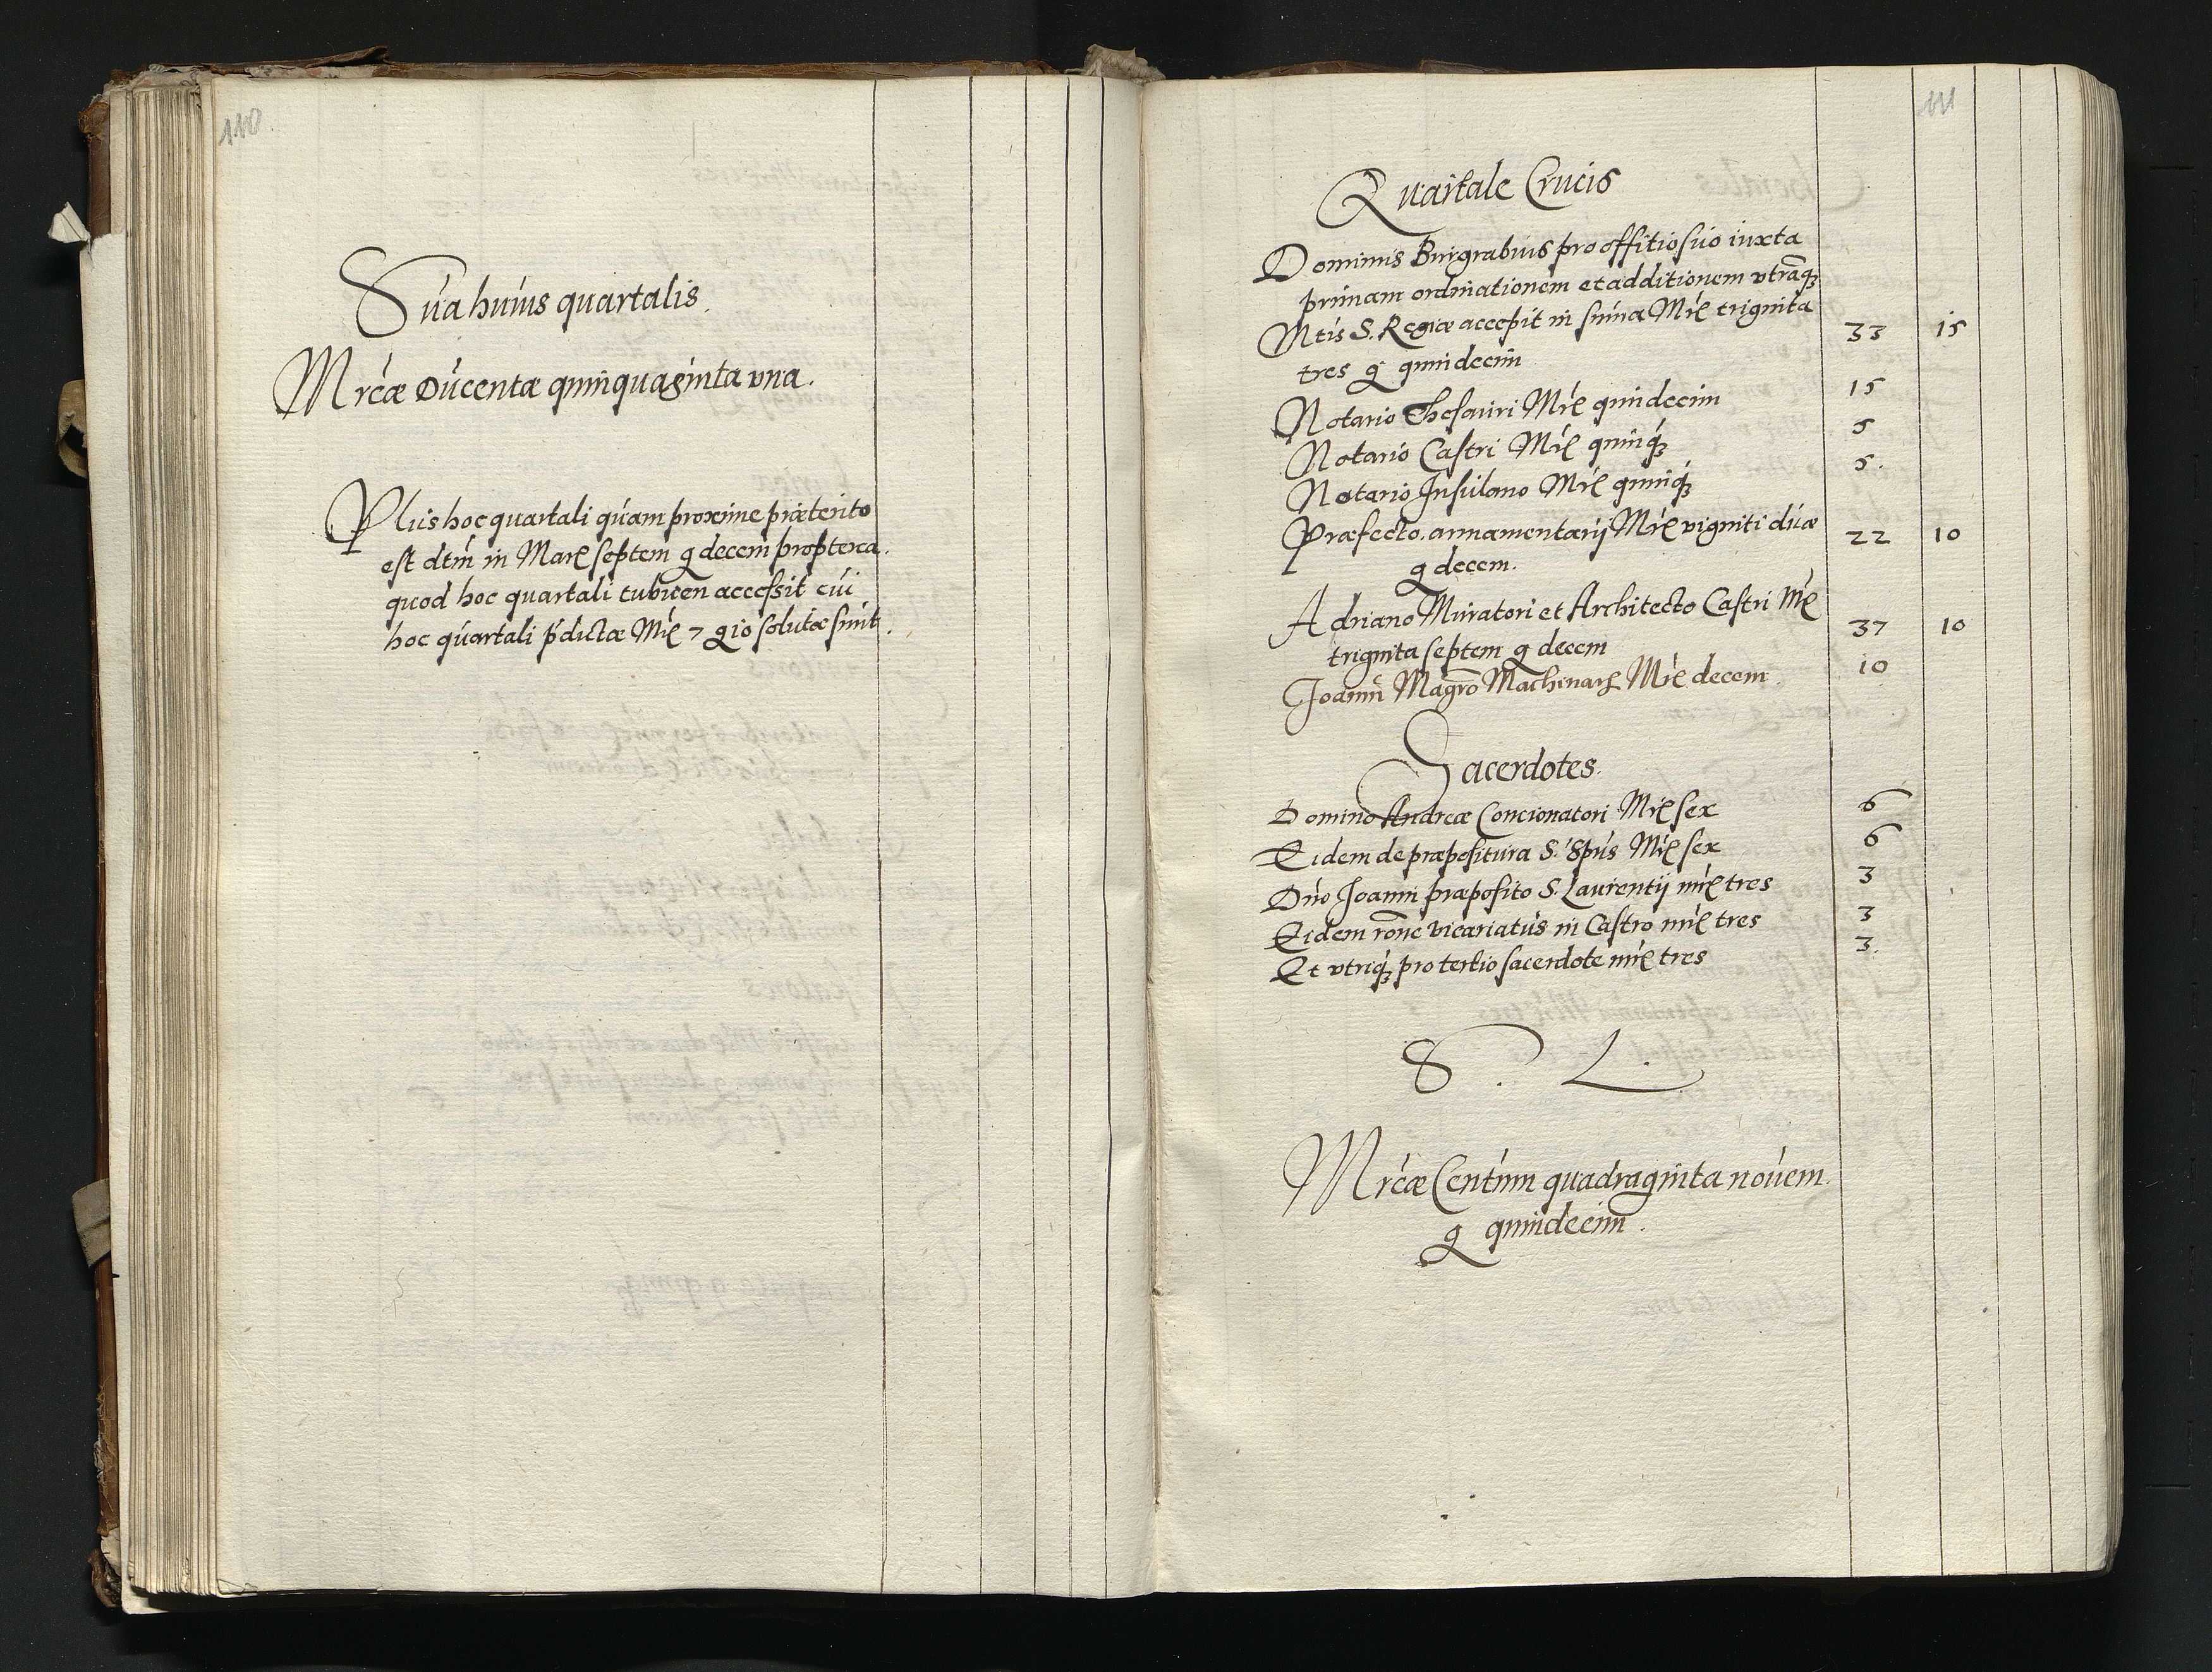 110
Sua huius quartalis.
Mrcæ Ducentæ quinquaginta vna.
Plus hoc quartali quam proxime præterito
est dtm in Marc septem g decem propterea.
quod hoc quartali tubicen accessit cui
hoc quartali pdictæ Mrc 7 g 10 solutæ sunt.
111
Quartale Crucis
Dominus Burgrabius pro offitio suo iuxta
primam ordinationem et additionem vtramq
Mtis S. Regiæ accepit in suma Mrc triginta 33 15
tres g quindecim
Notario Thesauri Mrc quindecim 15
Notario Castri Mrc quinq 5
Notario Insulano Mrc quinq 5.
Præfecto armamentarij Mrc viginti duæ 22 10
g decem.
Adriano Muratori et Architecto Castri Mrc
triginta septem g decem 37 10
Joanni Magro Machinar Mrc decem. 10
Sacerdotes.
Domino Andreæ Concionatori Mrc sex 6
Eidem de præpositura S. Spus Mrc sex 6
Dno Joanni præposito S. Laurentij mrc tres 3
Eidem rone vicariatus in Castro mrc tres 3
Et vtriq pro tertio sacerdote mrc tres 3.
S. L.
Mrcæ Centum quadraginta nouem.
g quindecim.